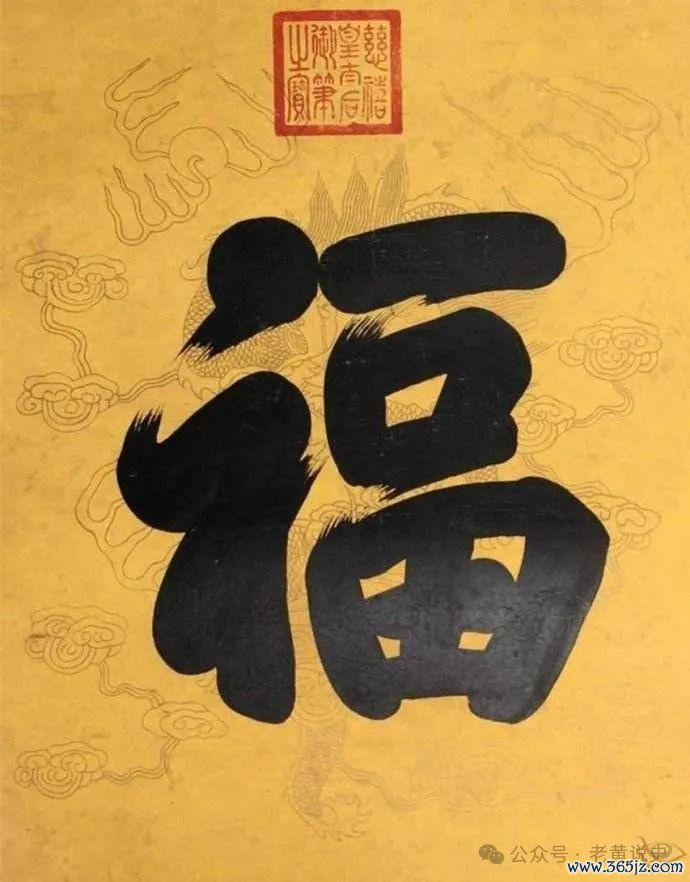 慈禧
皇太后
御筆
之寶
福
公众号 · 老黄说史
www.365jz.com